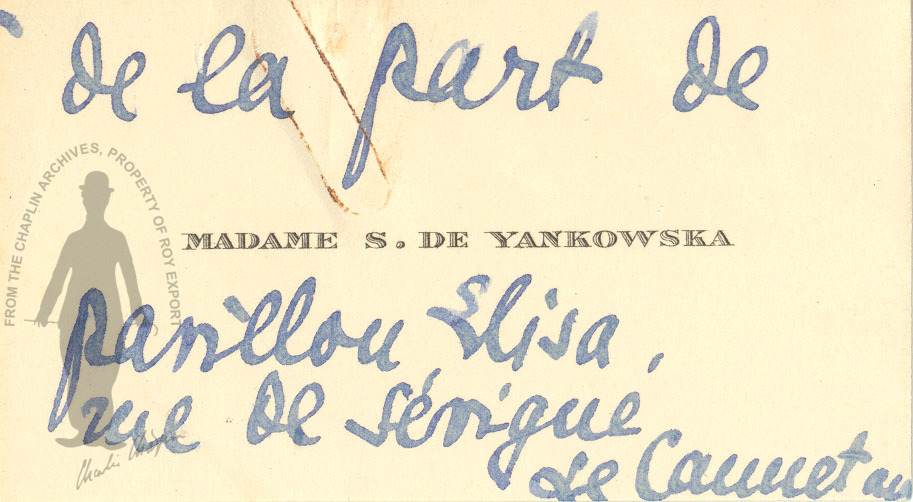 de la part de
MADAME S. DE YANKOWSKA
pavillon Elisa,
rue de Sévigné
Le Cannet
FROM THE CHAPLIN ARCHIVES, PROPERTY OF ROY EXPORT
Charlie Chaplin